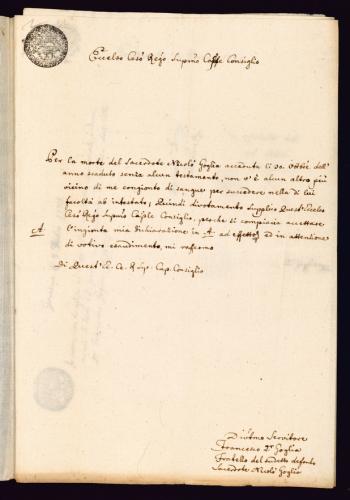 Eccelso Ces.º Reg.º Supmo Caple Consiglio
Per la morte del Sacerdote Nicolò Goglia accaduta li 30. Ottbre dell'
anno scaduto senza alcun testamento, non v'è alcun altro più
vicino di me congionto di sangue per succedere nella di lui
facoltà ab intestato; Quindi divotamente Supplico Quest'Eccelso
Ces.º Reg.º Supmo Caple Consiglio, perche si compiacia accettare
A. l'ingionta mia dichiarazione in A. ad effetto ed in attentione
di votivo esaudimento, mi rassegno
Di Quest' Ec. Ce. R. Sup. Cap. Consiglio
Divmo Servitore
Francesco Goglia
Fratello del sudetto defonto
Sacerdote Nicolò Goglia